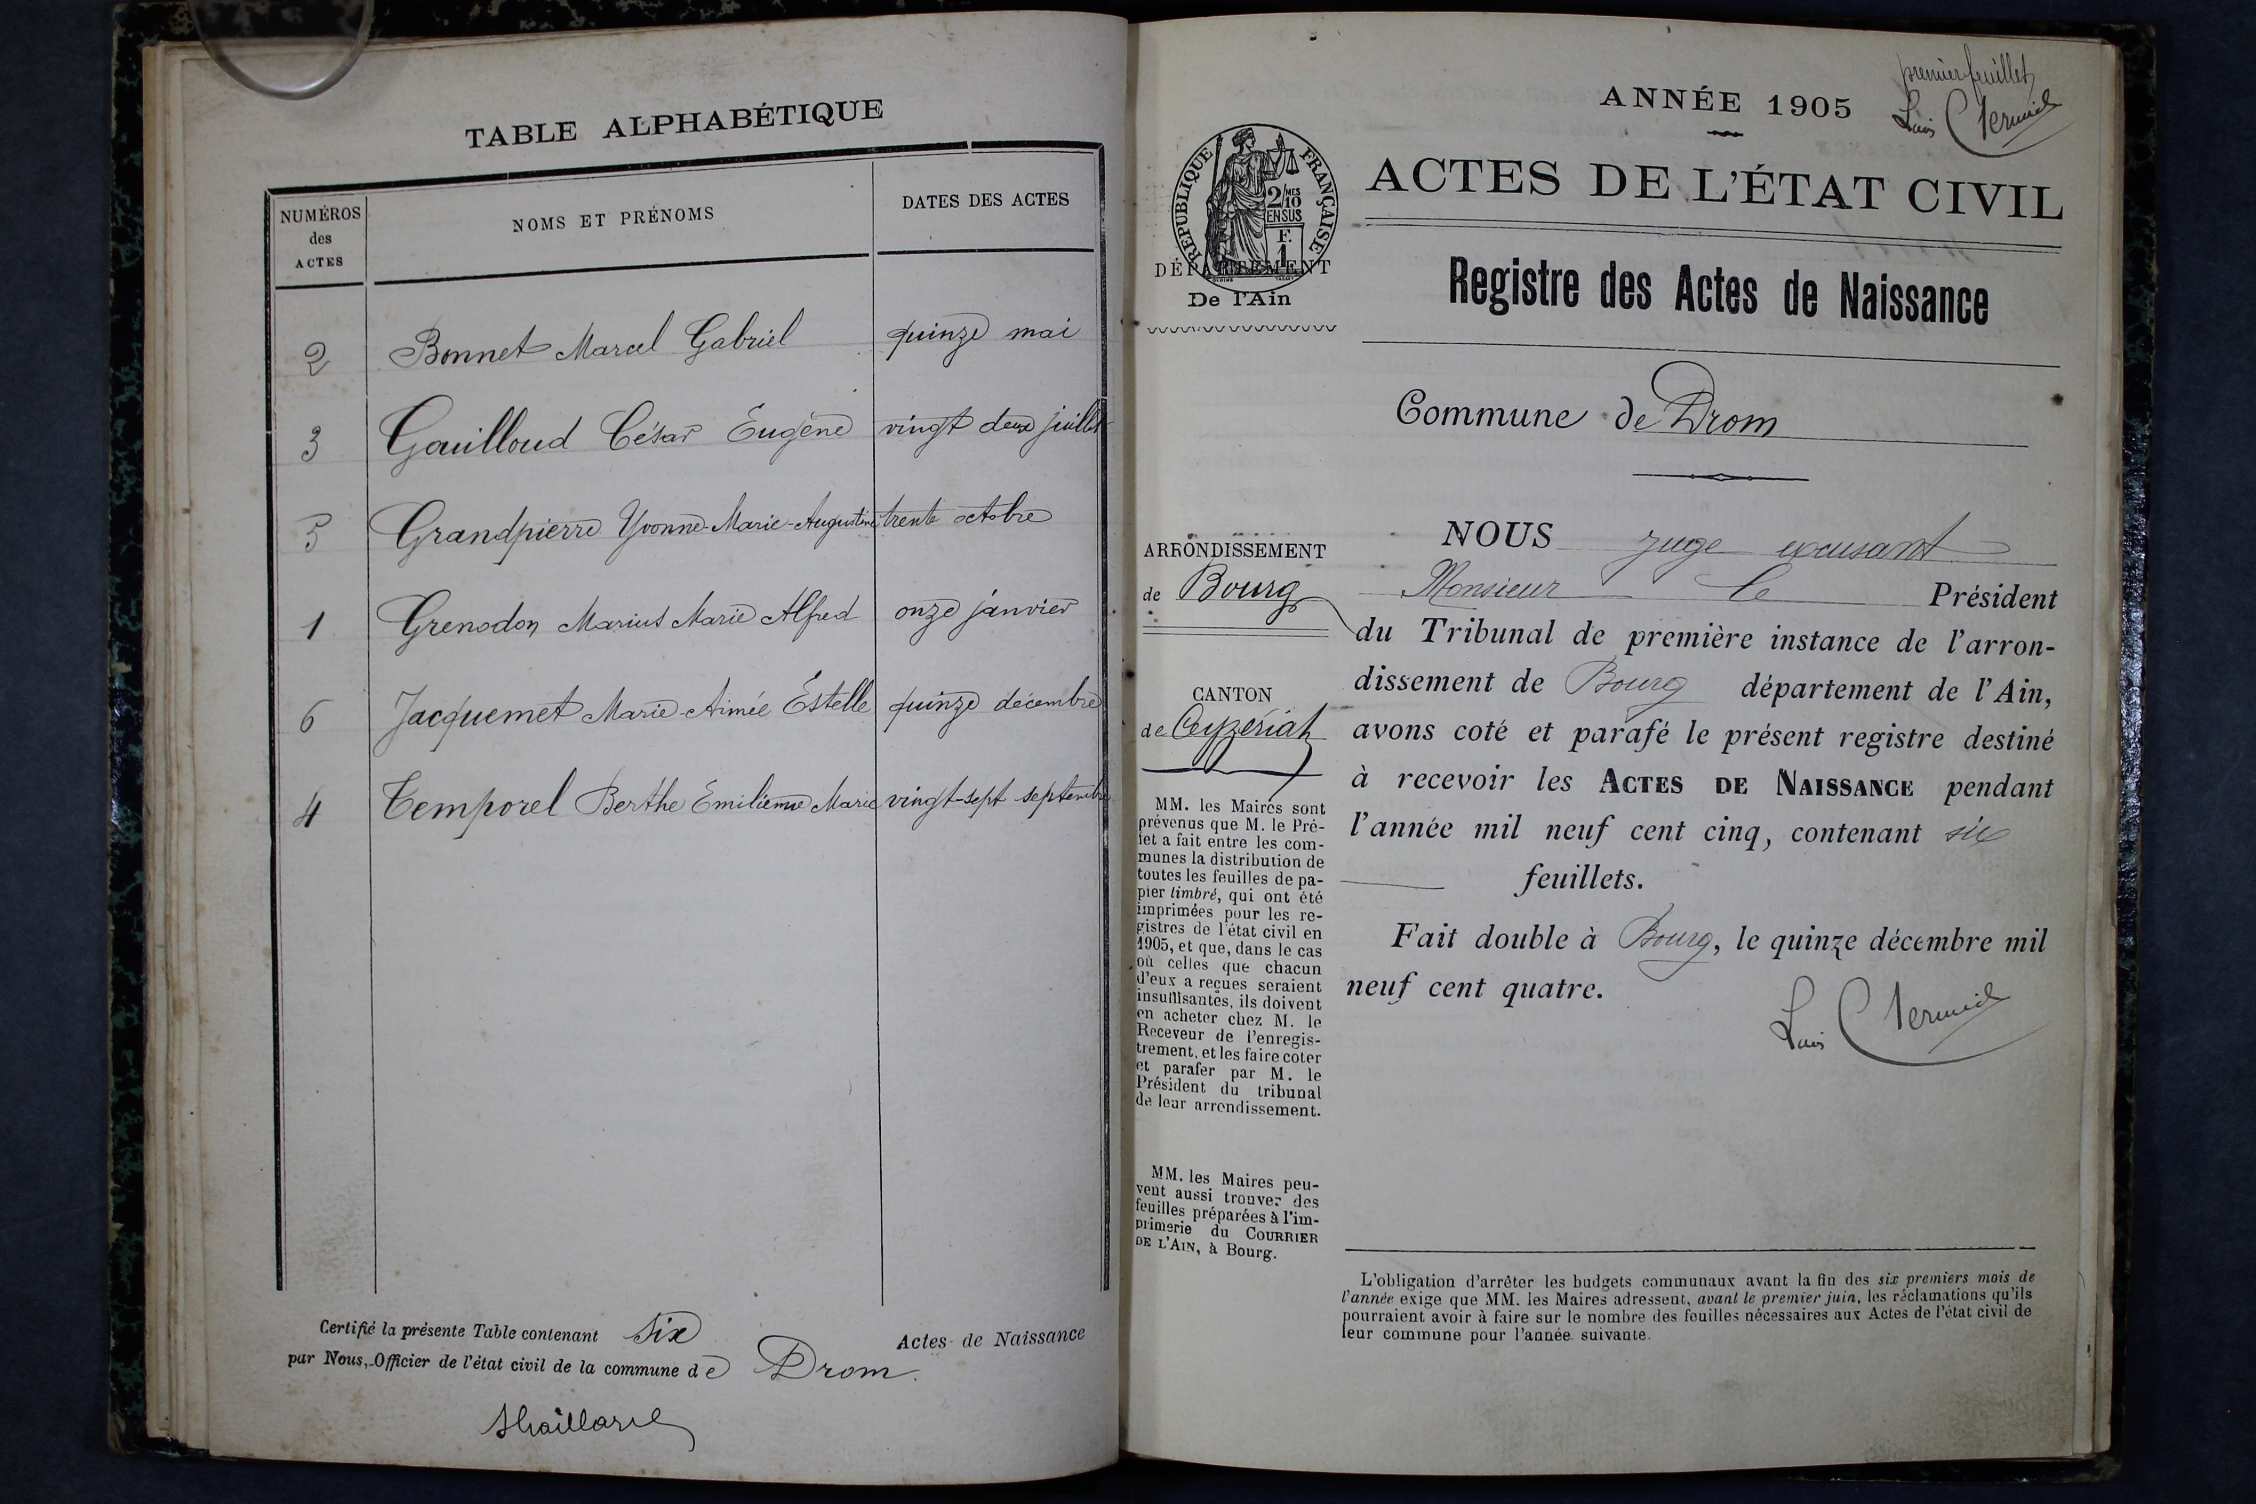 TABLE ALPHABÉTIQUE
NUMÉROS
des
ACTES
NOMS ET PRÉNOMS
DATES DES ACTES
2 Bonnet Marcel Gabriel quinze mai
3 Gouilloud César Eugène vingt deux juillet
5 Grandpierre Yvonne-Marie-Augustine trente octobre
1 Grenodon Marius Marie Alfred onze janvier
6 Jacquemet Marie-Aimée Estelle quinze décembre
4 Temporel Berthe Emilienne Marie vingt-sept septembre
Certifié la présente Table contenant six Actes de Naissance
par Nous, Officier de l'état civil de la commune de Drom.
premier feuillet
ANNÉE 1905
RÉPUBLIQUE FRANÇAISE
2/10 MES
EN SUS
F.
1
DÉPARTEMENT
De l'Ain
ACTES DE L'ÉTAT CIVIL
Registre des Actes de Naissance
Commune de Drom
ARRONDISSEMENT
de Bourg
CANTON
de Ceyzériat
MM. les Maires sont
prévenus que M. le Pré-
fet a fait entre les com-
munes la distribution de
toutes les feuilles de pa-
pier timbré, qui ont été
imprimées pour les re-
gistres de l'état civil en
1905, et que, dans le cas
où celles que chacun
d'eux a reçues seraient
insuffisantes, ils doivent
en acheter chez M. le
Receveur de l'enregis-
trement, et les faire coter
et parafer par M. le
Président du tribunal
de leur arrondissement.
MM. les Maires peu-
vent aussi trouver des
feuilles préparées à l'im-
primerie du COURRIER
DE L'AIN, à Bourg.
NOUS juge
Monsieur le Président
du Tribunal de première instance de l'arron-
dissement de Bourg département de l'Ain,
avons coté et parafé le présent registre destiné
à recevoir les ACTES DE NAISSANCE pendant
l'année mil neuf cent cinq, contenant six
feuillets.
Fait double à Bourg, le quinze décembre mil
neuf cent quatre.
L'obligation d'arrêter les budgets communaux avant la fin des six premiers mois de
l'année exige que MM. les Maires adressent, avant le premier juin, les réclamations qu'ils
pourraient avoir à faire sur le nombre des feuilles nécessaires aux Actes de l'état civil de
leur commune pour l'année suivante.